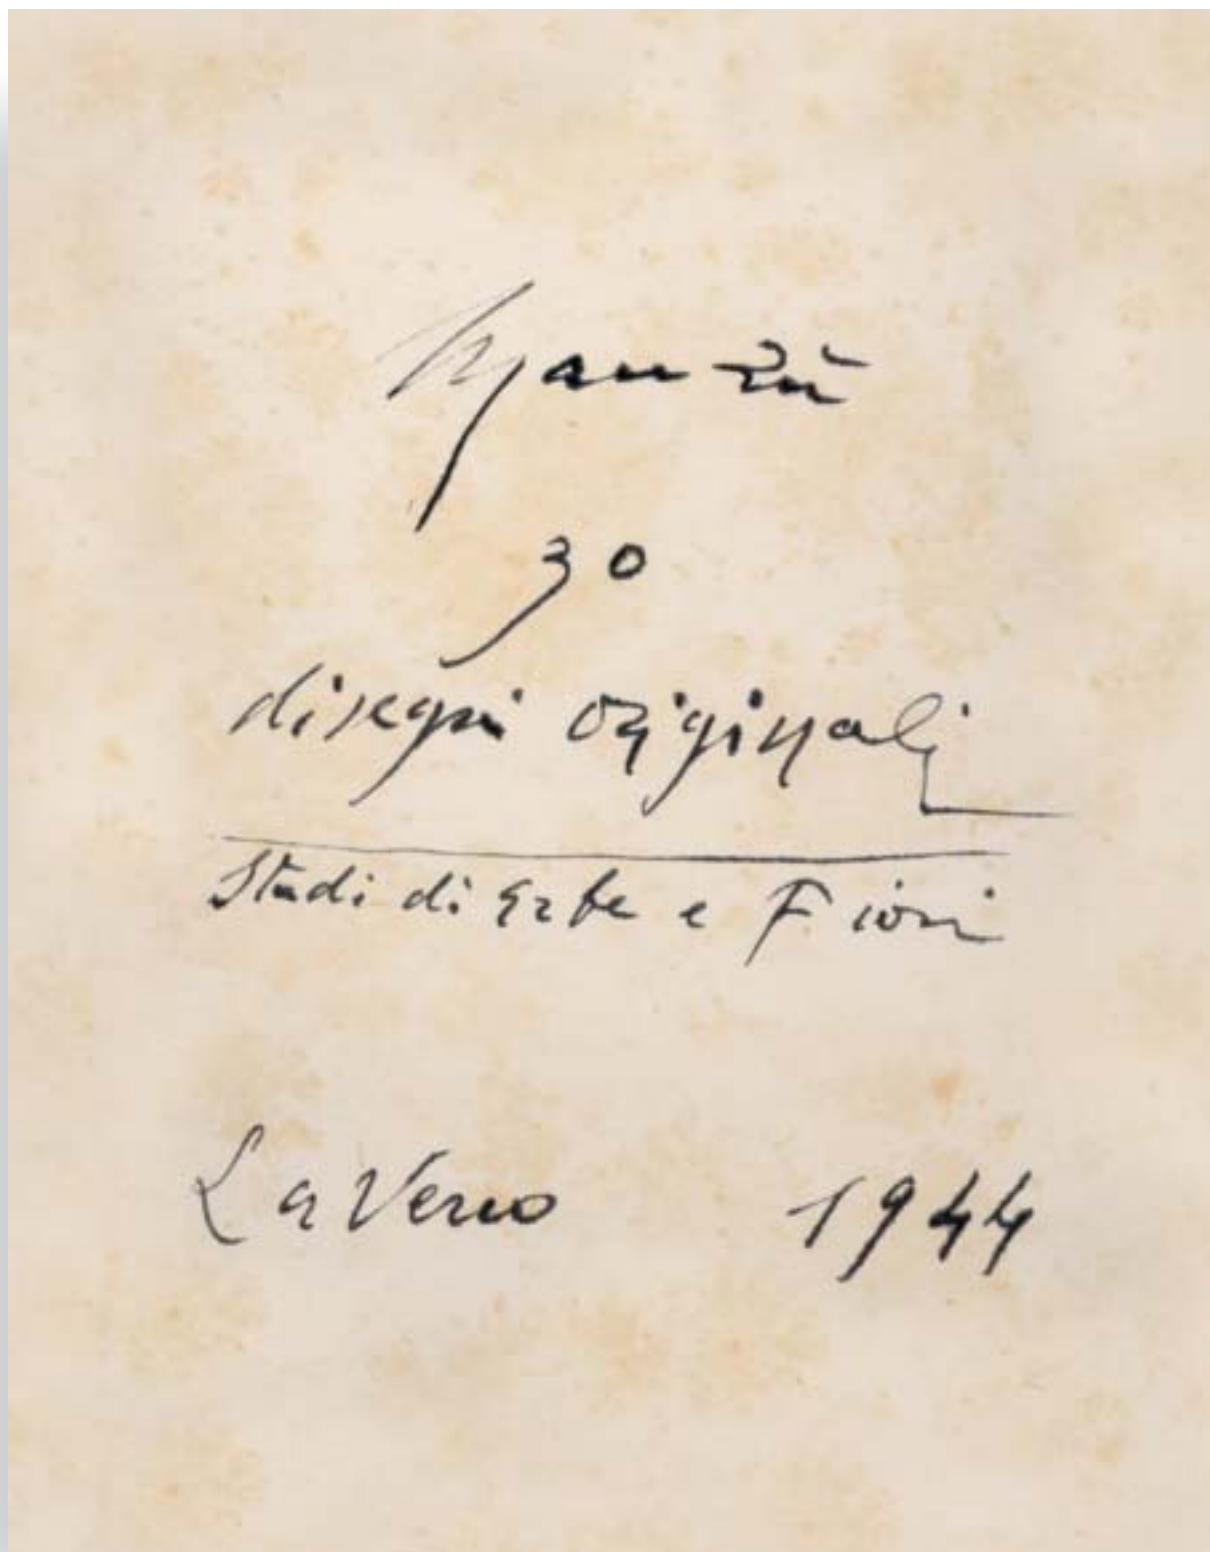 Manzù
30
disegni originali
Studi di Erbe e Fiori
Laveno 1944